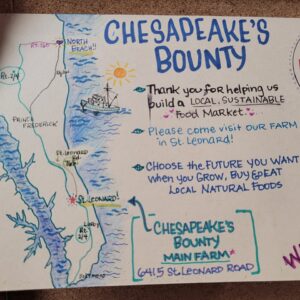 CHESAPEAKE'S
BOUNTY
Thank you for helping us
build a LOCAL, SUSTAINABLE
Food Market.
Please come visit OUR FARM
in St. Leonard!
CHOOSE THE FUTURE YOU WANT
when you GROW, BUY & EAT
LOCAL NATURAL FOODS
CHESAPEAKE'S
BOUNTY
MAIN FARM
6415 St. LEONARD ROAD
NORTH
BEACH!!
Rt. 2/4
PRINCE
FREDERICK
St. LEONARD
Rd.
St. LEONARD!
Rt.
2/4